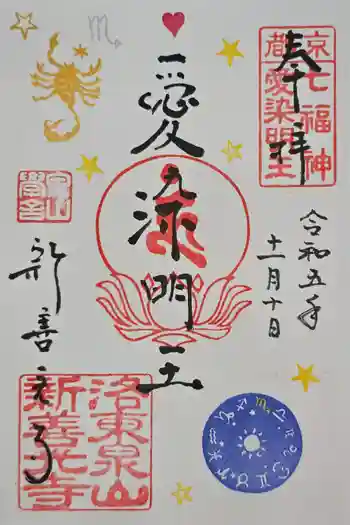 奉拝
京都
七福神
愛染明王
令和五年
十一月十日
愛染明王
新善光寺
洛東泉山
新善光寺